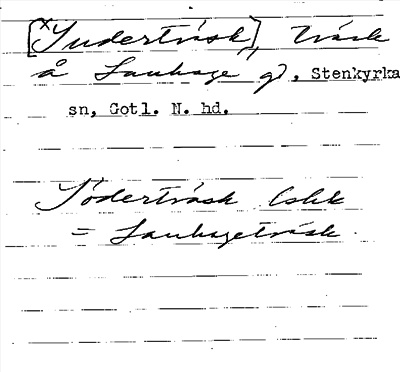 [×Juderträsk], träsk
å Lauhage g), Stenkyrka
sn, Gotl. N. hd.
Söderträsk
= Lauhageträsk.